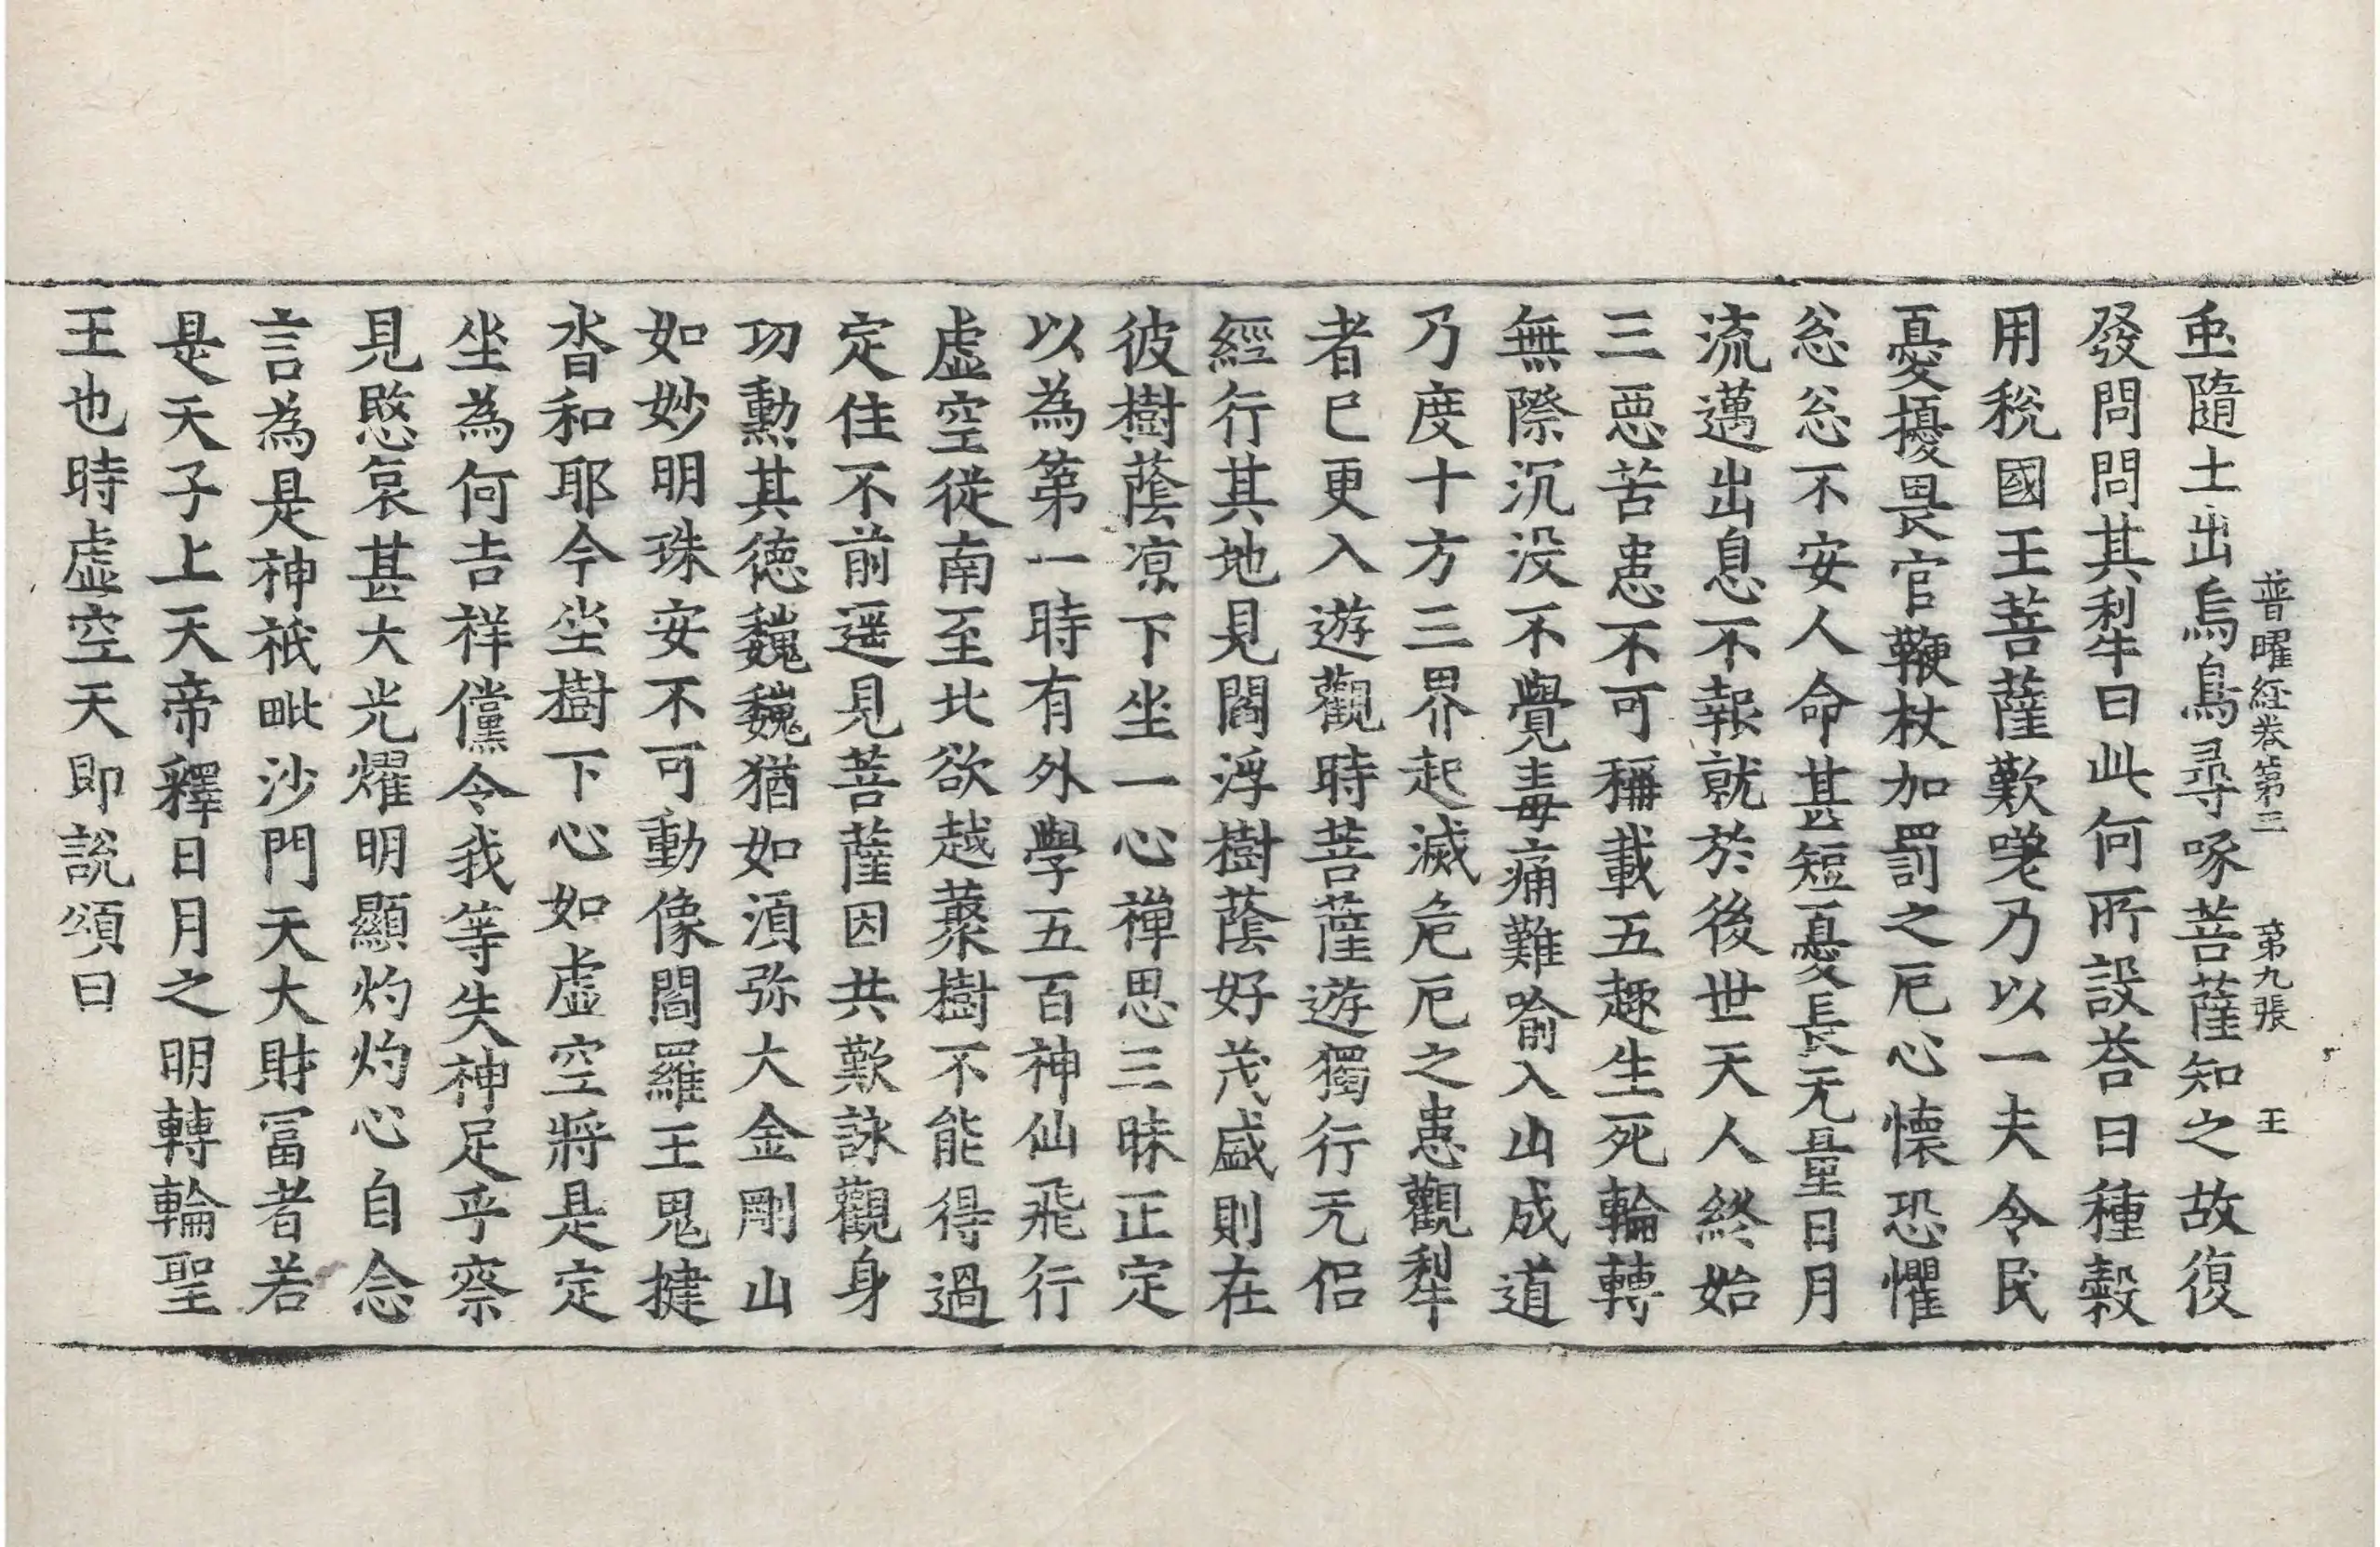 普曜経卷第三　第九張　王
䖝隨土出烏鳥尋啄菩薩知之故復
發問問其犁牛曰此何所設荅曰種糓
用稅國王菩薩歎嗟乃以一夫令民
憂擾畏官鞭杖加罰之厄心懷恐懼
忩忩不安人命甚短憂長无量日月
流邁出息不報就於後世天人終始
三惡苦患不可稱載五趣生死輪轉
無際沉没不覺毒痛難喻入山成道
乃度十方三界起滅危厄之患觀犁
者已更入遊觀時菩薩遊獨行无侣
經行其地見閻浮樹蔭好茂盛則在
彼樹蔭凉下坐一心禪思三昧正定
以為第一時有外學五百神仙飛行
虚空從南至北欲越藂樹不能得過
定住不前遥見菩薩因共歎詠觀身
功勲其德巍巍猶如湏弥大金剛山
如妙明珠安不可動像閻羅王鬼揵
沓和耶今坐樹下心如虚空將是定
坐為何吉祥儻令我等失神足乎察
見愍哀甚大光燿明顯灼灼心自念
言為是神祇毗沙門天大財冨者若
是天子上天帝釋日月之明轉輪聖
王也時虚空天即說頌曰